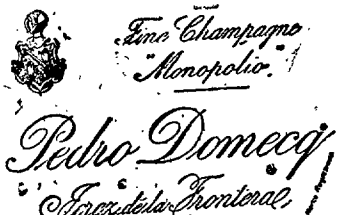 Fine Champagne
"Monopolio."
Pedro Domecq
Jerez de la Frontera,